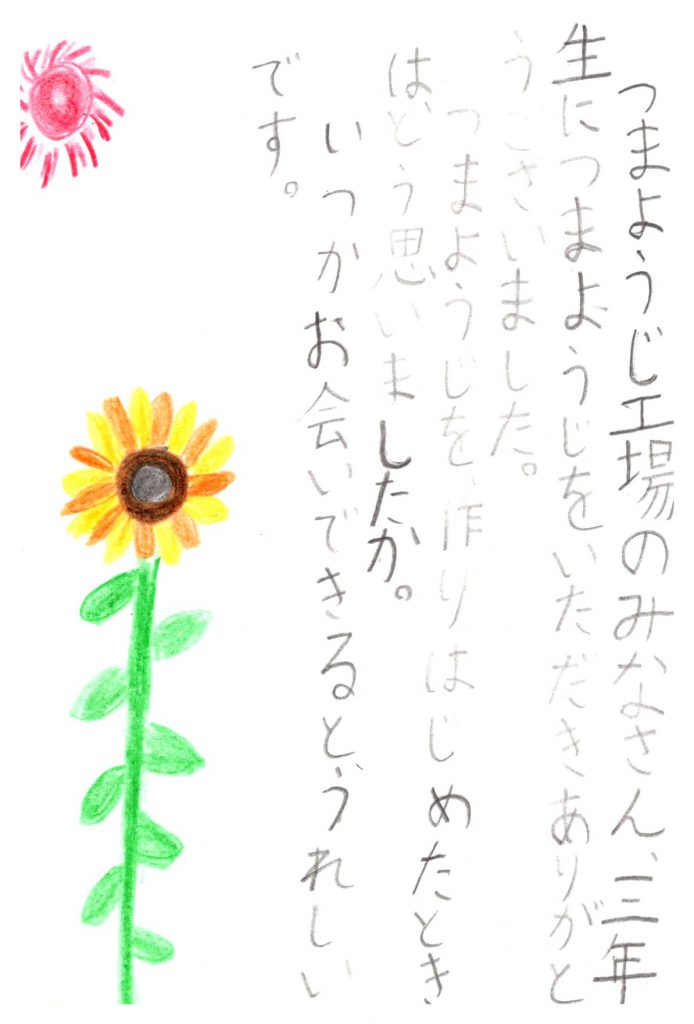 つまようじ工場のみなさん、三年
生につまようじをいただきありがと
うございました。
つまようじを、作りはじめたとき
はどう思いましたか。
いつかお会いできると、うれしい
です。